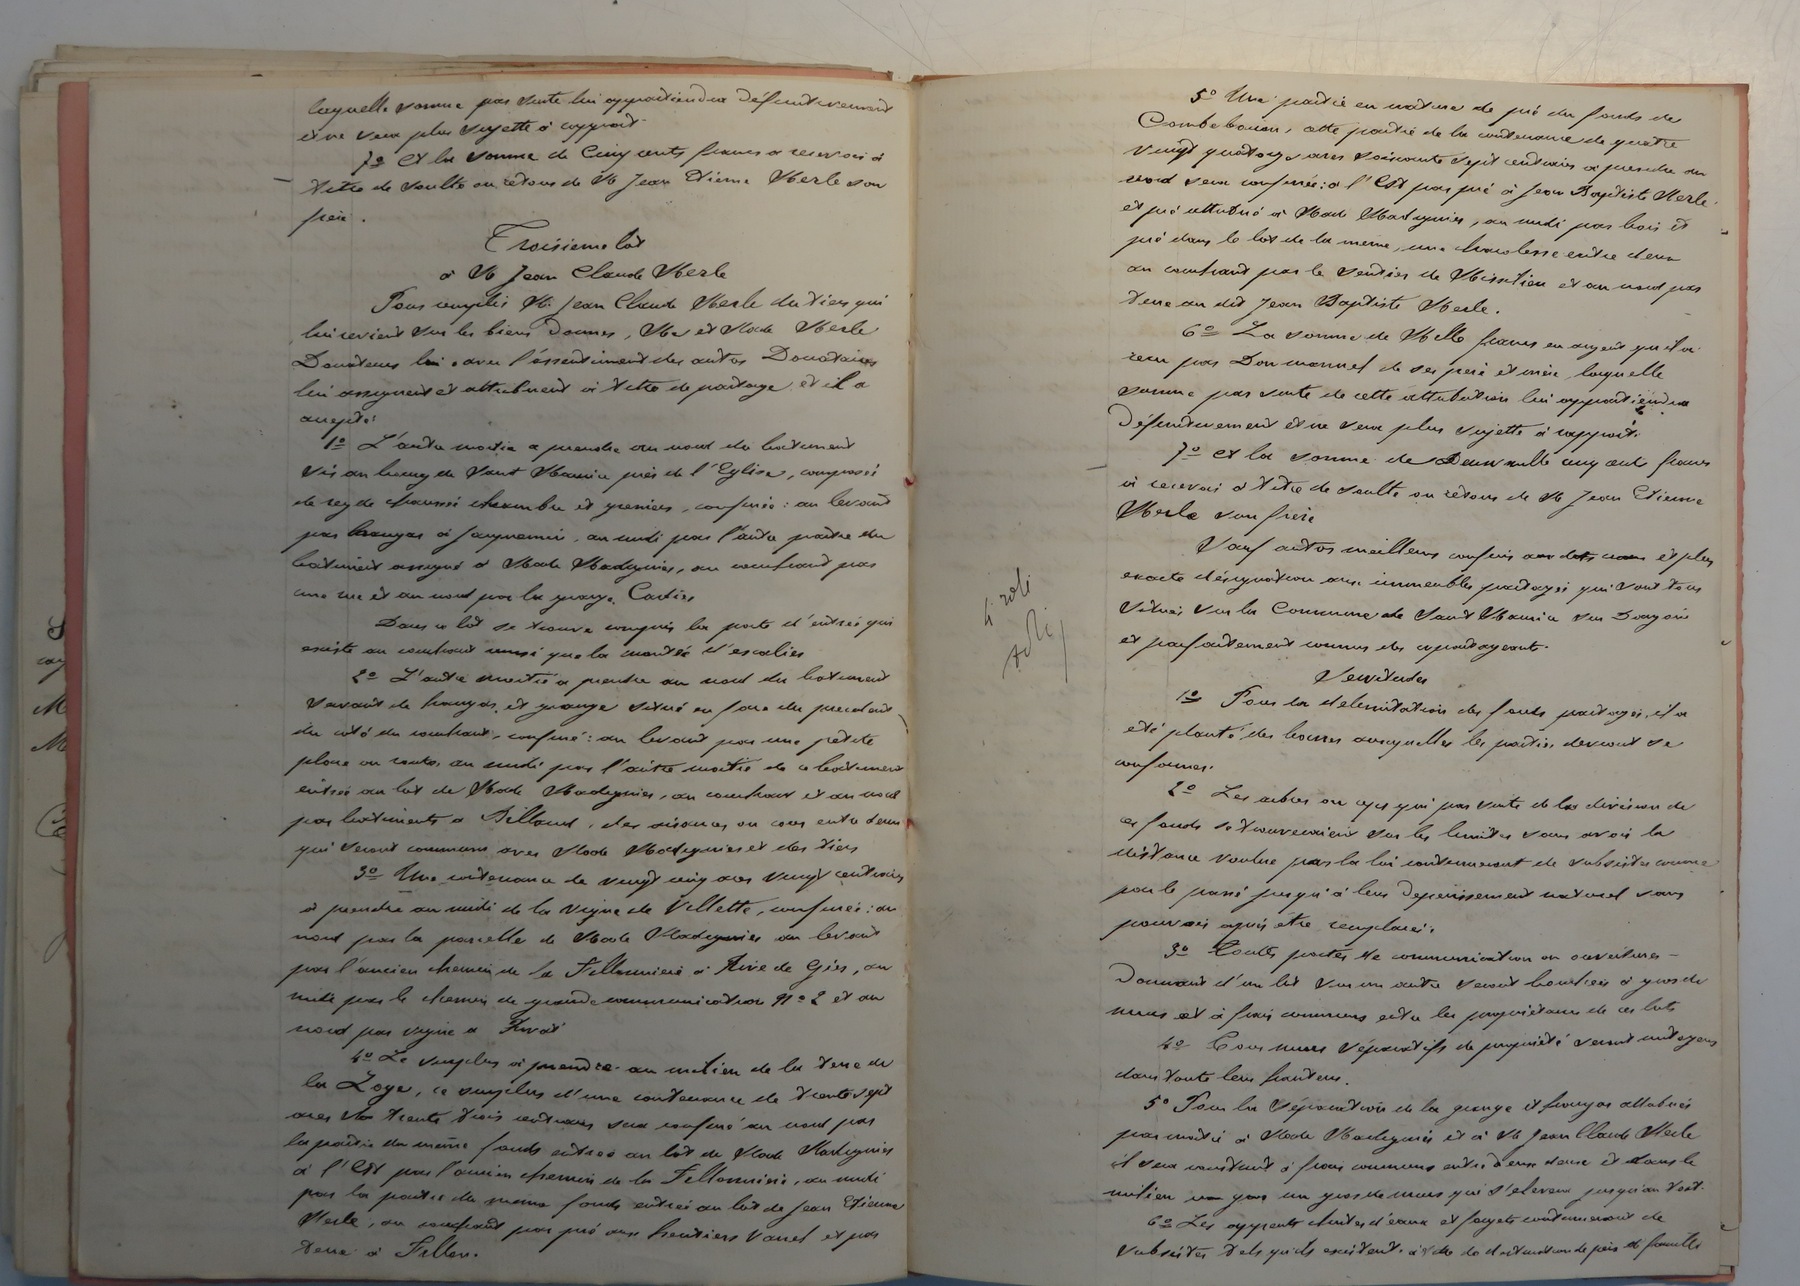 laquelle somme par suite lui appartiendra définitivement
et ne sera plus sujette à rapport
7º Et la somme de Cinq cents francs à recevoir à
titre de soulte ou retour de Mr Jean Etienne Merle son
frère.
Troisieme lot
à Mr Jean Claude Merle
Pour remplir Mr Jean Claude Merle du tiers qui
lui revient sur les biens donnés, Mr et Made Merle
Donateurs lui avec l'assentiment des autres Donataires
lui assignent et attribuent à titre de partage et il a
accepté:
1º L'autre moitié à prendre au nord du batiment
sis au bourg de Saint Maurice près de l'Eglise, composé
de rez de chaussé chambre et greniers, confiné: au levant
par hangar à Jacquemin, au midi par l'autre partie du
batiment assigné à Made Madignier, au couchant par
une rue et au nord par la grange Cartier
Dans ce lot se trouve compris la porte d'entrée qui
existe au couchant ainsi que la montée d'escalier
2º L'autre moitié à prendre au nord du batiment
servant de hangar et grange situé en face du precedent
du coté du couchant, confiné: au levant par une petite
place ou cour au midi par l'autre moitié de ce batiment
entrée au lot de Made Madignier, au couchant et au nord
par batiments à Billaud, des aisances ou cour entre deux
qui seront communs avec Made Madignier et des tiers
3º Une contenance de vingt cinq ares vingt centiares
à prendre au midi de la vigne de Villette, confinée: au
nord par la parcelle de Made Madignier au levant
par l'ancien chemin de la Fillonnière à Rive de Gier, au
midi par le chemin de grande communication Nº 2 et au
nord par vigne à
4º Le surplus à prendre au milieu de la terre de
la Loge, ce surplus d'une contenance de trente sept
ares trente trois centiares sera confiné au nord par
la partie du même fonds entrée au lot de Made Madignier
à l'Est par l'ancien chemin de la Fillonnière, au midi
par la partie du même fonds entrée au lot de Jean Etienne
Merle, au couchant par pré aux heritiers et par
terre à Fillon.
5º Une partie en nature de pré du fonds de
Combebouson, cette partie de la contenance de quatre
vingt quatorze ares soixante sept centiares à prendre au
nord sera confinée: à l'Est par pré à Jean Baptiste Merle
et pré attribué à Made Madignier, au midi par bois et
pré dans le lot de la même, une entre deux
au couchant par le sentier de et au nord par
terre au dit Jean Baptiste Merle.
6º La somme de Mille francs en argent qu'il a
reçu par Don manuel de ses père et mère, laquelle
somme par suite de cette attribution lui appartiendra
définitivement et ne sera plus sujette à rapport.
7º Et la somme de Deux mille cinq cents francs
à recevoir à titre de soulte ou retour de Mr Jean Etienne
Merle son frère
Sauf autres meilleurs confins et plus
exacte désignation aux immeubles partagés qui sont tous
situés sur la Commune de Saint Maurice sur Dargoire
et parfaitement connus des copartageants.
Servitudes
1º Pour la delimitation des fonds partagés, il a
été planté des bornes auxquelles les parties devront se
conformer.
2º Les arbres ou ceps qui par suite de la division de
ces fonds se trouveraient sur les limites sans avoir la
distance voulue par la loi continueront de subsister comme
par le passé jusqu'à leur deperissement naturel sans
pouvoir après être remplacés.
3º Toutes portes de communication ou ouvertures
Donnant d'un lot sur un autre seront bouchées à gros de
murs et à frais communs entre les propriétaires de ces lots
4º Tous murs séparatifs de propriété seront mitoyens
dans toute leur hauteur.
5º Pour la séparation de la grange et hangar attribués
par moitié à Made Madignier et à Mr Jean Claude Merle
il sera construit à frais communs entre eux deux et dans le
milieu un gros de murs qui s'élevera jusqu'au toit.
6º Les appents chutes d'eaux et forgets continueront de
subsister tels qu'ils existent, à titre de destination de père de famille